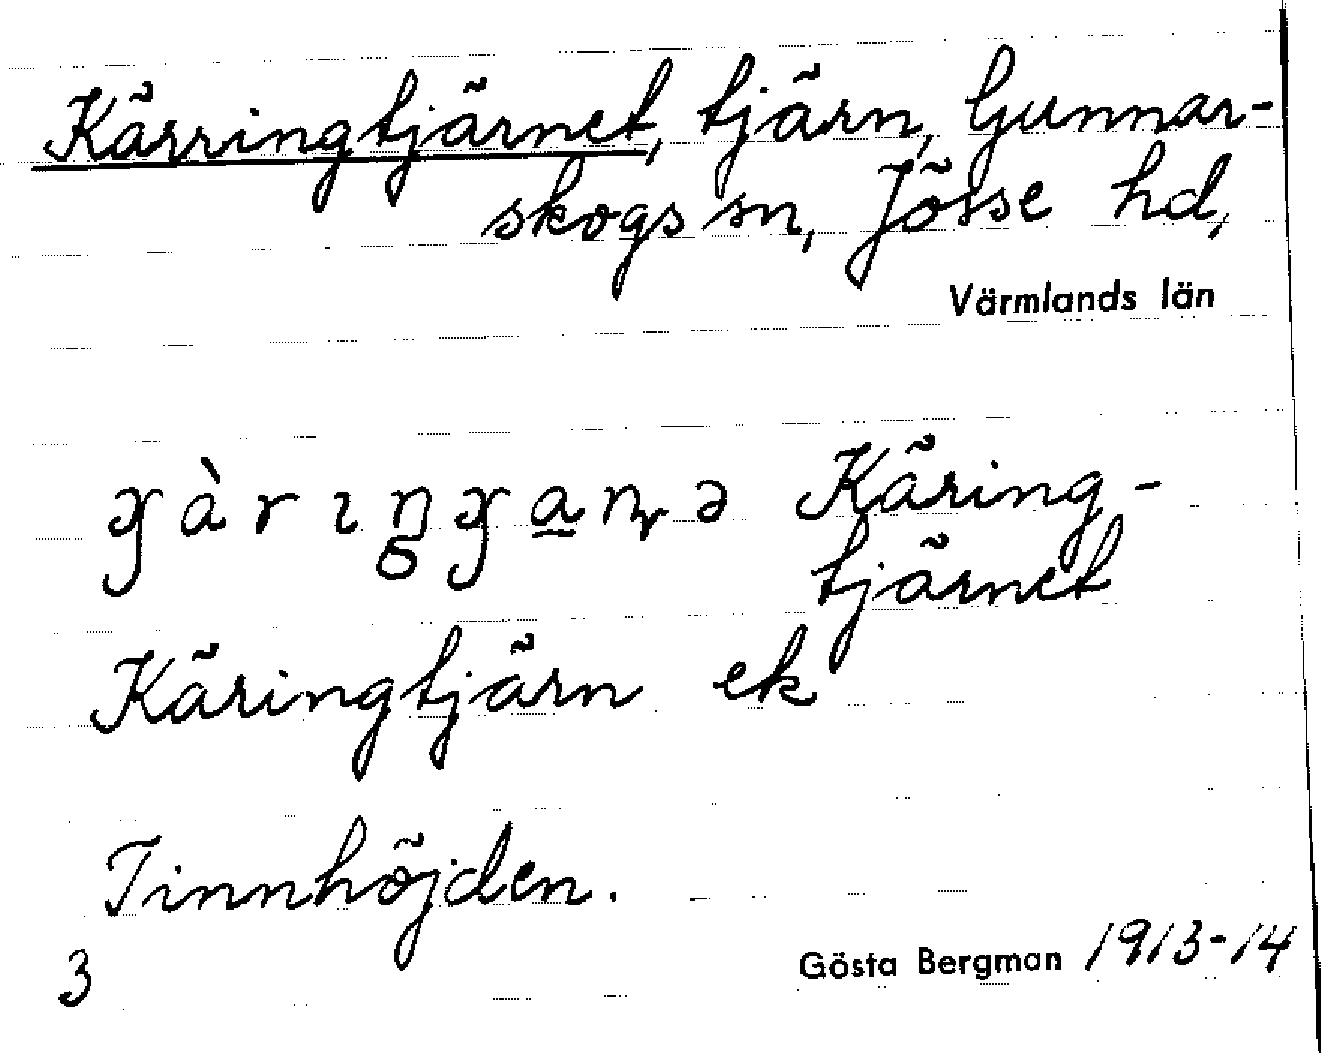 Kärringtjärnet, tjärn, Gunnar-
skogs sn, Jösse hd,
Värmlands län
Käring-
tjärnet
Käringtjärn ek
Tinnhöjden.
3
Gösta Bergman 1913-14